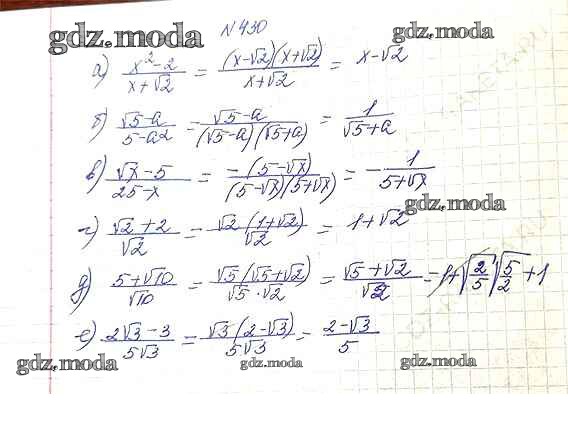 N 430
gdz.moda
gdz.moda
а) (x²-2)/(x+√2) = ((x-√2)(x+√2))/(x+√2) = x-√2
б) (√5-a)/(5-a²) = (√5-a)/((√5-a)(√5+a)) = 1/(√5+a)
в) (√x-5)/(25-x) = (-(5-√x))/((5-√x)(5+√x)) = -1/(5+√x)
gdz.moda
г) (√2+2)/√2 = (√2(1+√2))/√2 = 1+√2
д) (5+√10)/√10 = (√5(√5+√2))/(√5·√2) = (√5+√2)/√2 = √(5/2)+1
е) (2√3-3)/(5√3) = (√3(2-√3))/(5√3) = (2-√3)/5
gdz.moda
gdz.moda
gdz.moda